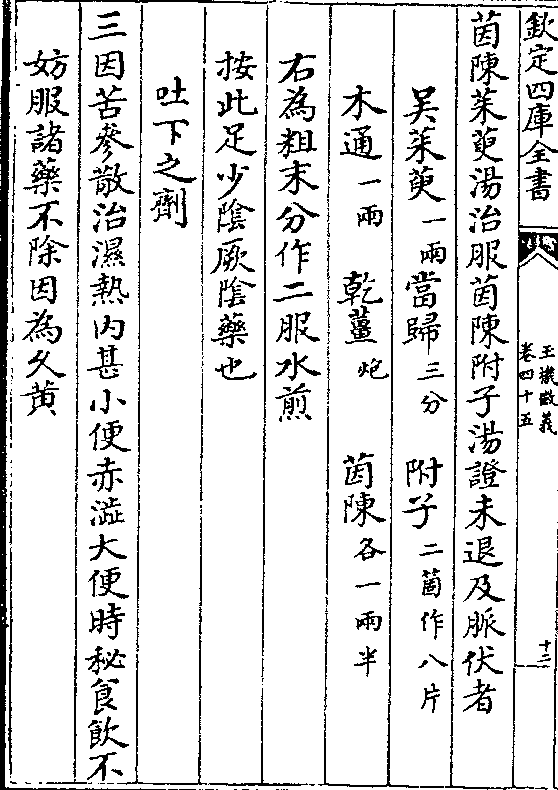 欽定四庫全書
玉機微義
卷四十五
十二
茵陳茱萸湯治服茵陳附子湯證未退及脈伏者
吴茱萸一兩當歸三分 附子二箇作八片
木通一兩 乾薑炮 茵陳各一兩半
右為粗末分作二服水煎
按此足少陰厥陰藥也
吐下之劑
三因苦參散治濕熱内甚小便赤澁大便時秘食飲不
妨服諸藥不除因為久黄